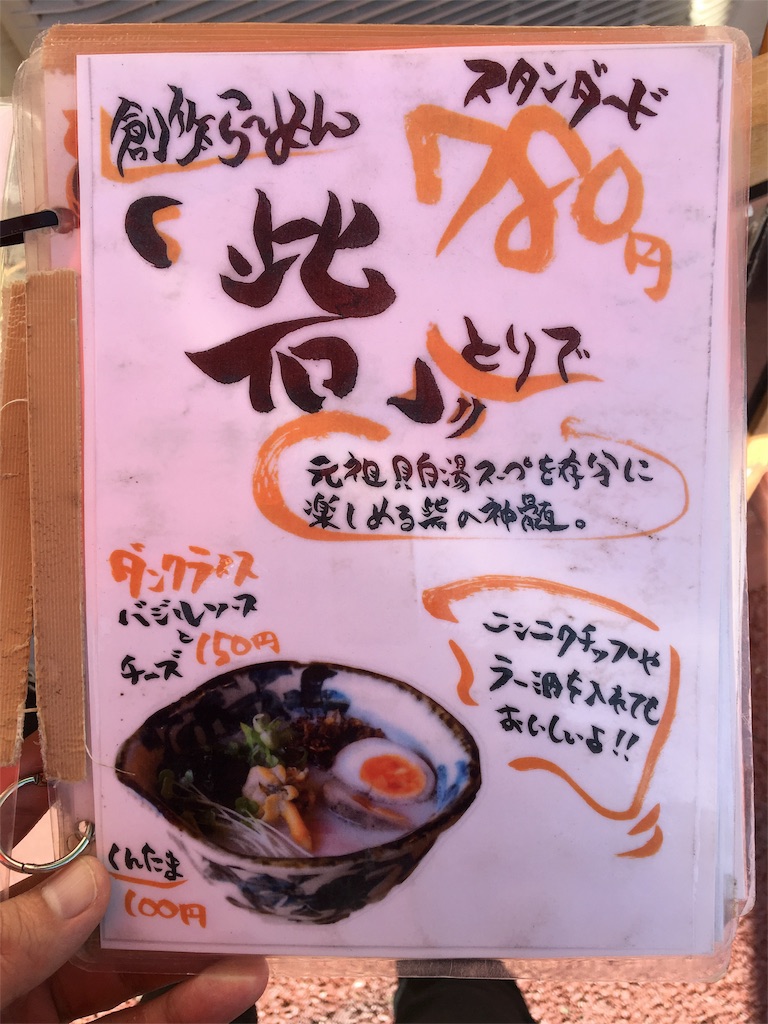 創作らーめん
スタンダード
780円
「砦」
とりで
元祖貝白湯スープを存分に
楽しめる砦の神髄。
ダンクライス
バジルソース
と
チーズ
150円
ニンニクチップや
ラー油を入れても
おいしいよ!!
くんたま
100円